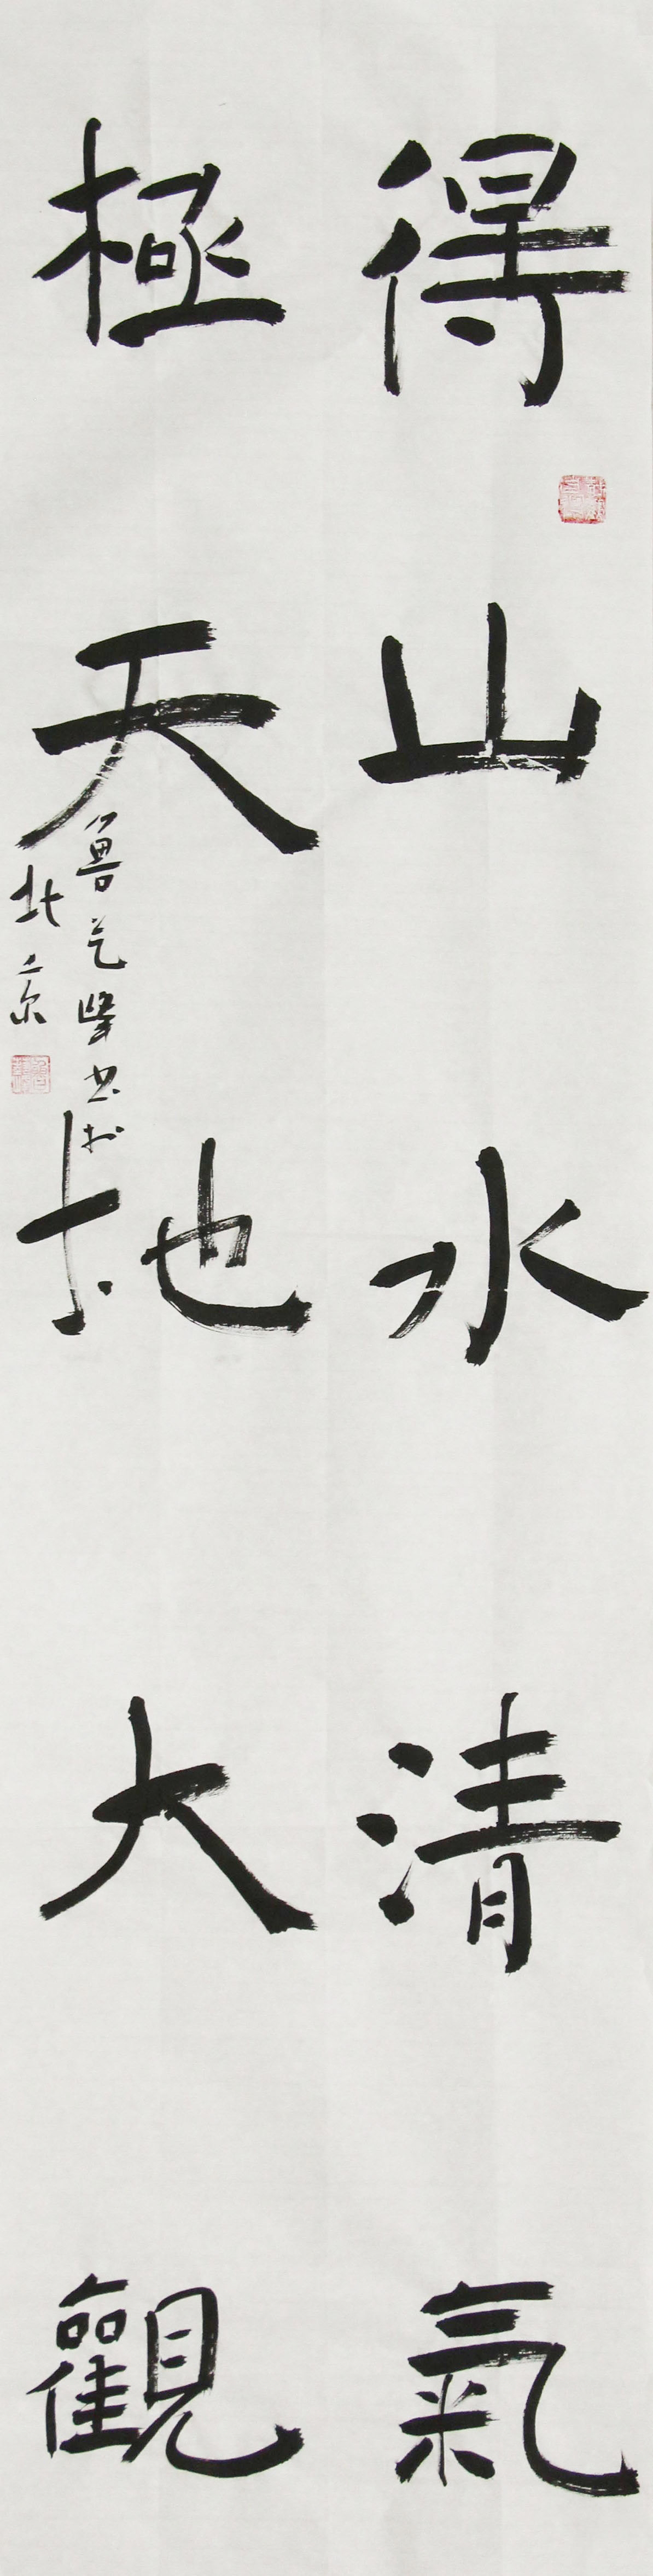 得山水清氣
極天地大觀
魯
書於
北京